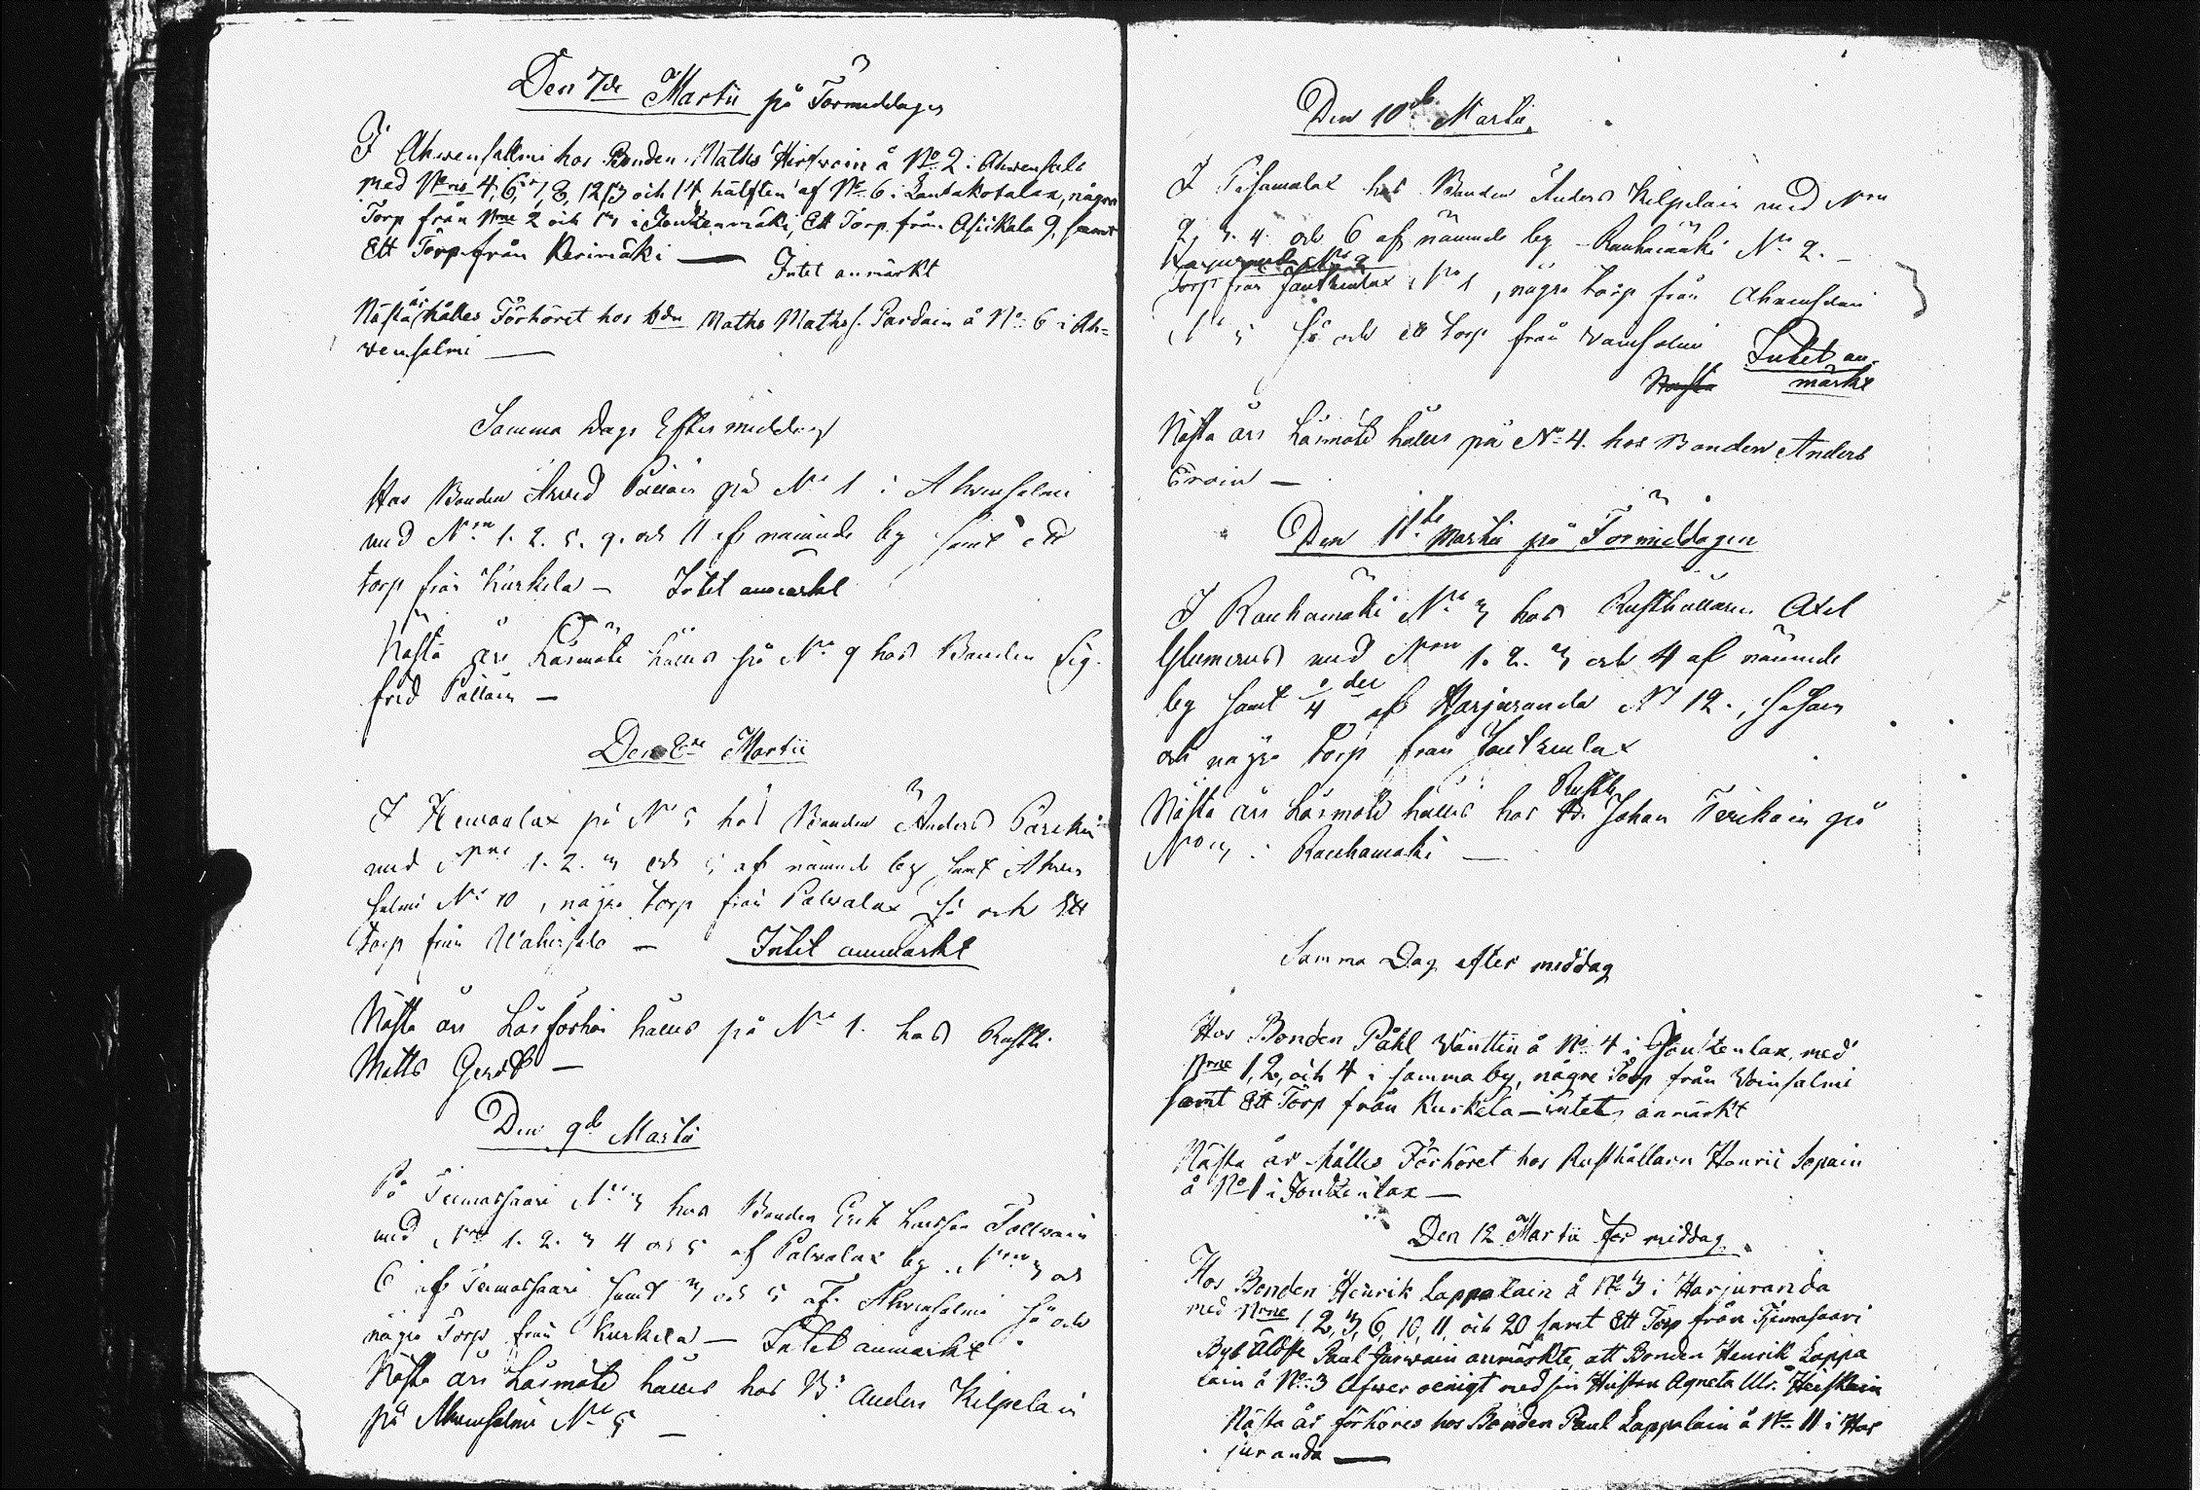 Den 7de Martii på Förmiddagen
I Ahwensallmi hos Bonden Mathes Hirfwoin å No 2 i Ahwensalo
med Nris 4, 6, 7, 8, 12, 13 och 14, hälften af No 6 i Lautakotalax, några
Torp från Nrne 2 och 3 i Jontzenmäki, Ett Torp från Asikala 9, samt
Ett Torp från Kerimäki — Intet anmärkt
Nästa år hålles Förhöret hos bdn Maths Mathss. Pardain å No 6 i Ah=
wensalmi —
Samma Dags Eftermiddag
Hos Bonden Arved Pöllöin på No 1 i Ahvensalmi
med Nrn 1. 2. 5. 9. och 11 af nämnde by samt ett
torp från Kurkela — Intet anmärkt
Nästa års Läsmöte hålles på No 9 hos Bonden Sig-
frid Pöllöin —
Den 8de Martii
I Hemonlax på No 5 hos Bonden Anders Parckin
med Nrne 1. 2. 3 och 5 af nämnde by samt Ahven
salmi No 10, några torp från Palvalax så och Ett
torp från Wahersalo — Intet anmärkt
Nästa års Läsförhör hålles på No 1. hos Rusth.
Matts Gerdt —
Den 9de Martii
På Tiemassaari No 3 hos Bonden Erik Larsson Tollwain
med Nrne 1. 2. 3 4 och 5 af Palvalax by. Nrne 3 och
6 af Tiemassaari samt 3 och 5 af Ahvensalmi så och
några Torp från Kurkela — Intet anmärkt
Nästa års Läsmöte hålles hos B: Anders Kilpelain
på Ahvensalmi No 5 —
Den 10de Martii
I Pisamalax hos Bonden Anders Kilpelain med Nrn
2, 3. 4. och 6 af nämnde by Rauhamäki No 2. —
Torp från Jontzenlax No 1, några torp från Ahvensalmi
No 5 så och ett torp från Voinsalmi Intet an-
Nästa märkt
Nästa års Läsmöte hålles på No 4. hos Bonden Anders
Eroin —
Den 11te Martii på Förmiddagen
I Rauhamäki No 3 hos Rusthållaren Axel
Glumerus med Nrne 1. 2. 3 och 4 af nämnde
by samt 1/4 del af Harjuranda No 12.,
och några torp från Jontzenlax
Nästa års Läsmöte hålles hos Rusth. Johan Terikain på
No 3 i Rauhamäki —
Samma Dag efter middag
Hos Bonden Påhl Wänttin å No 4 i Jontzenlax, med
Nrne 1, 2, och 4 i samma by, några Torp från Woinsalmi
samt Ett Torp från Kurkela — intet anmärkt
Nästa år hålles Förhöret hos Rusthållarn Henric Sepain
å No 1 i Jontzenlax —
Den 12 Martii för middag
Hos Bonden Henrik Lappalain å No 3 i Harjuranda
med Nrne 1, 2, 3, 6, 10, 11, och 20 samt Ett Torp från Tjemasaari
By Äldste Paul Jarwain anmärkte, att Bonden Henrik Lappa
lain å No 3 lefwer oenigt med sin Hustru Agneta Ulr. Heiskain
Nästa år förhöres hos Bonden Paul Lappalain å No 11 i Har
juranda —